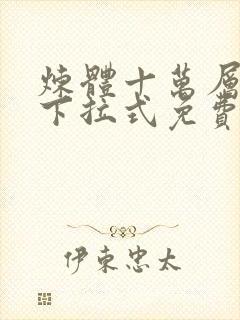 煉體十萬層
下拉式免費
伊東忠太